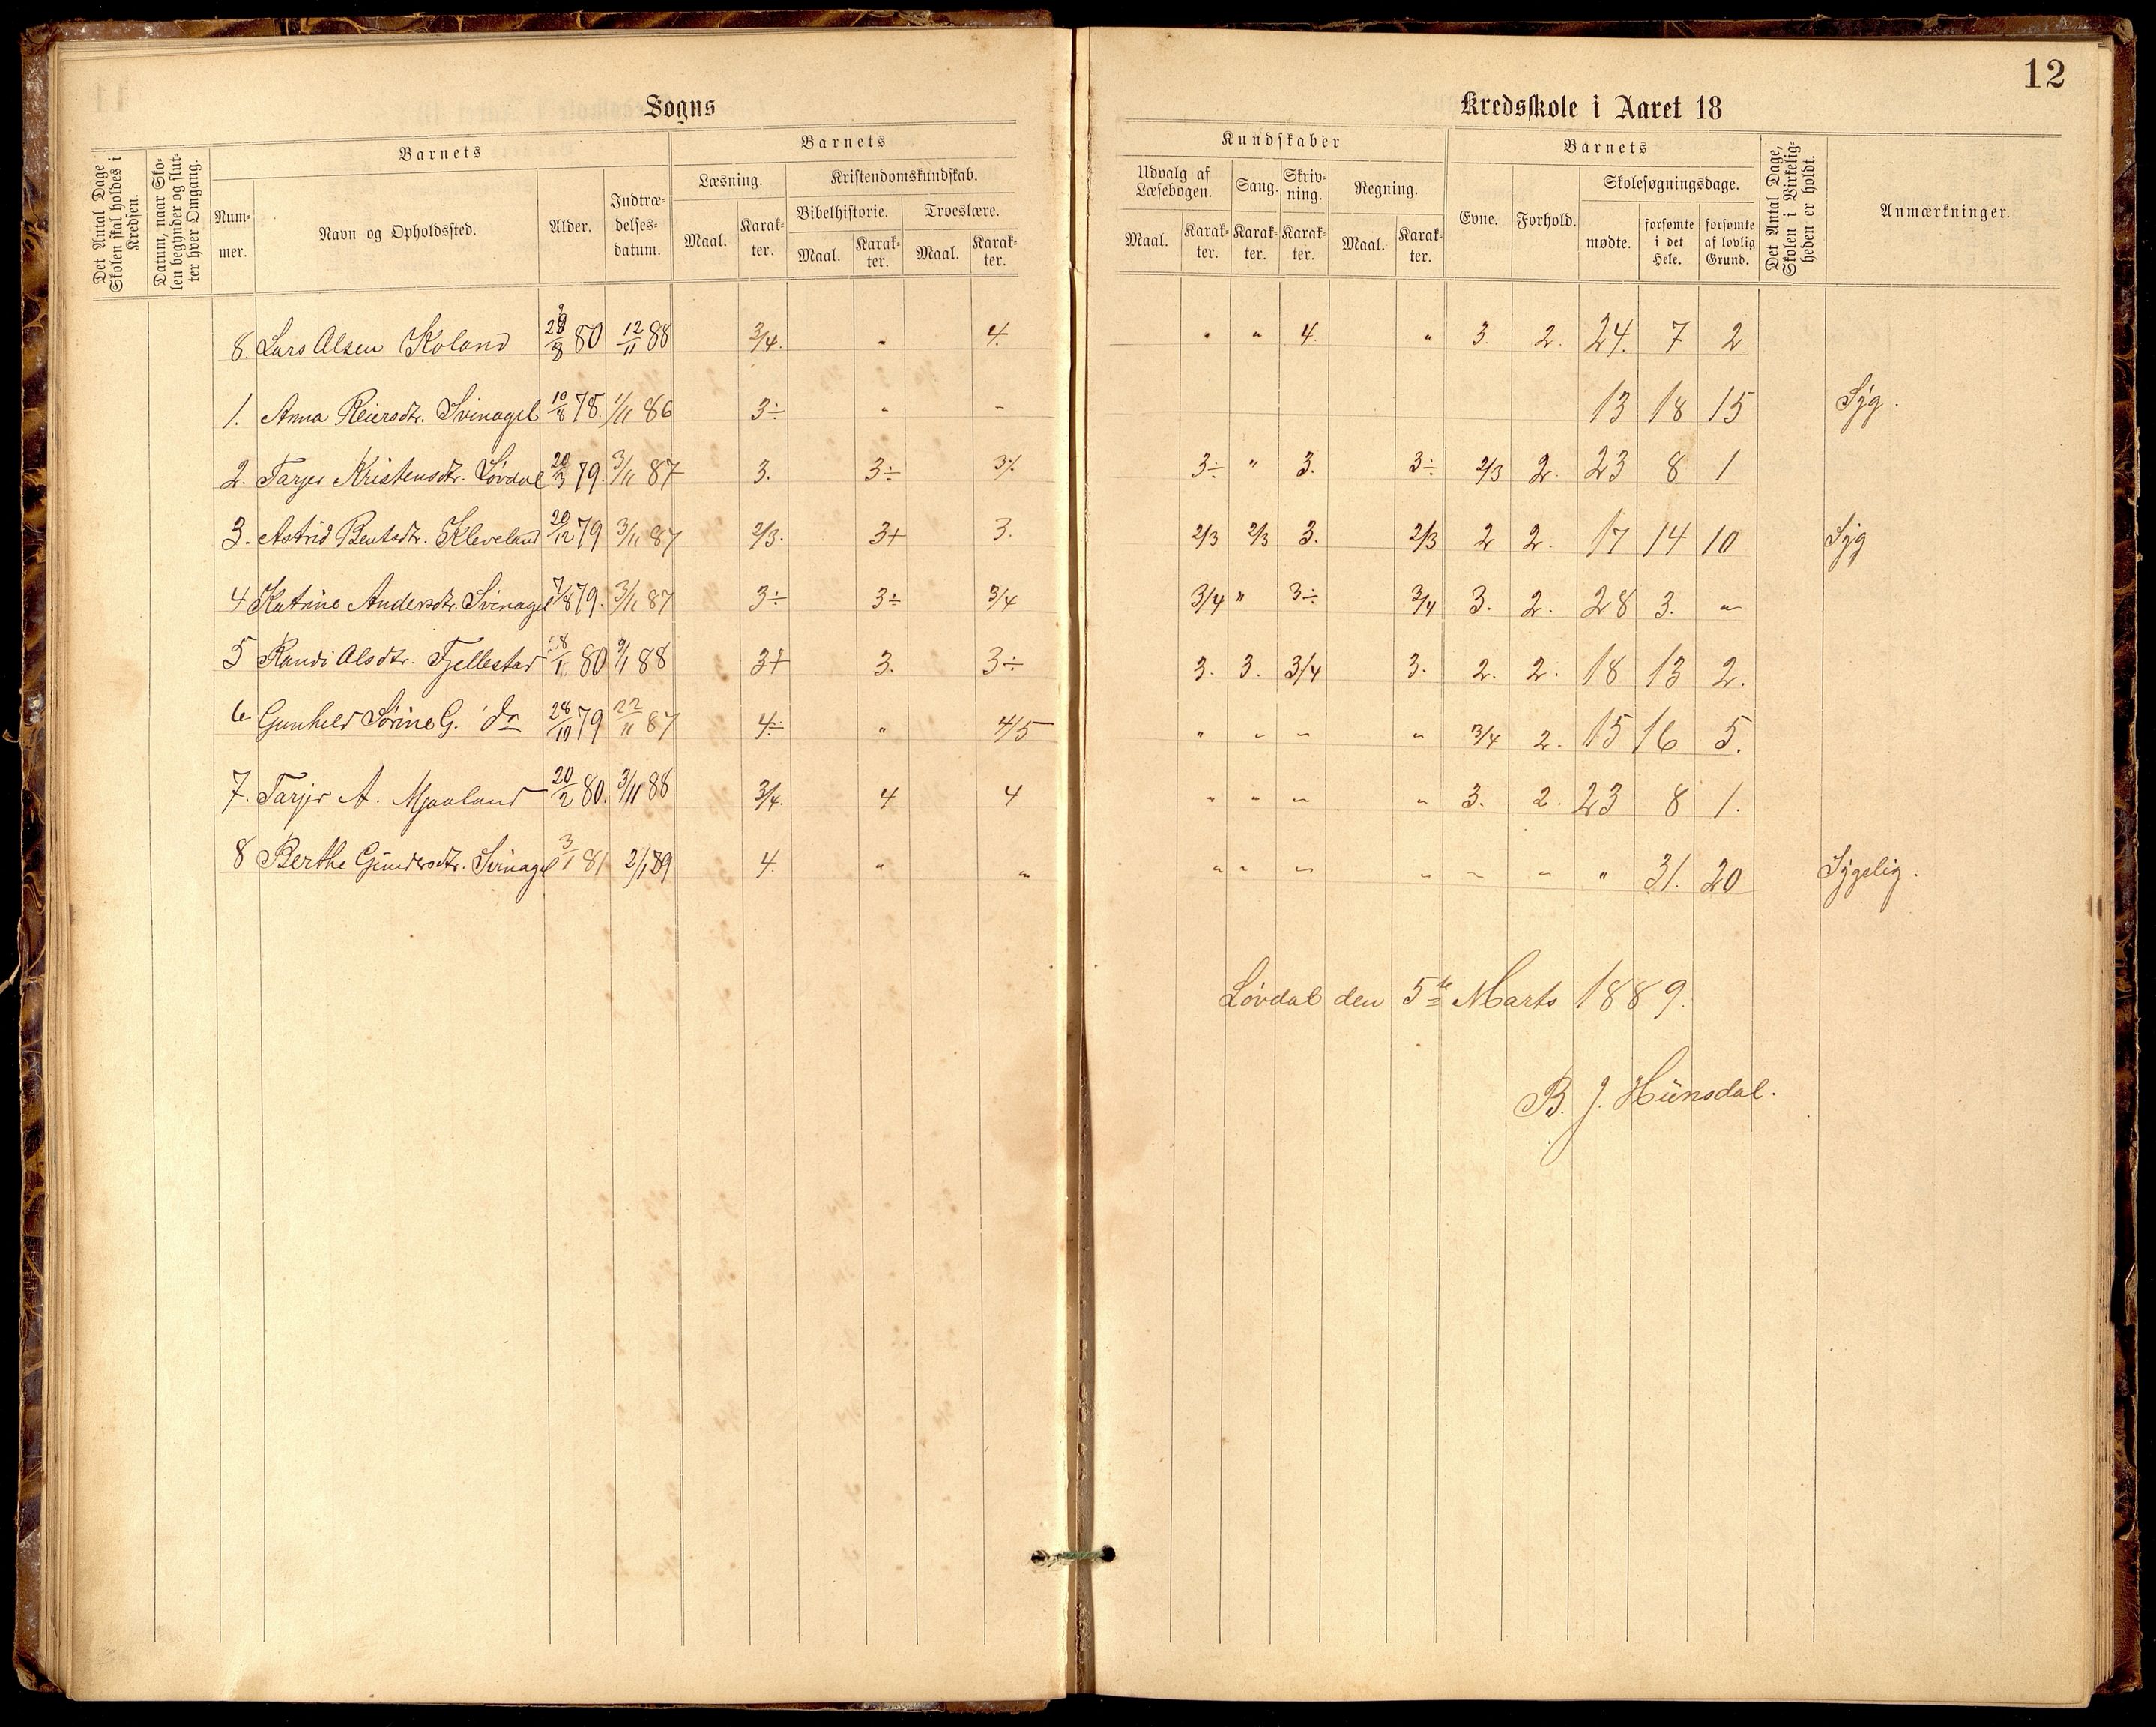 12
Sogns
Kredsskole i Aaret 18
Det Antal Dage Skolen skal holdes i Kredsen.
Datum, naar Skolen begynder og slutter hver Omgang.
Barnets
Nummer.
Navn og Opholdssted.
Alder.
Indtrædelsesdatum.
Barnets
Læsning.
Maal. Karakter.
Kristendomskundskab.
Bibelhistorie. Troeslære.
Maal. Karakter. Maal. Karakter.
Kundskaber
Udvalg af Læsebogen. Sang. Skrivning. Regning.
Maal. Karakter. Karakter. Karakter. Maal. Karakter.
Barnets
Evne. Forhold.
Skolesøgningsdage.
mødte. forsømte i det Hele. forsømte af lovlig Grund.
Det Antal Dage, Skolen i Virkeligheden er holdt.
Anmærkninger.
8. Lars Olsen Koland 80 12/11 88 3/4. " 4. " " 4. " 3. 2. 24. 7 2
1. Anna Reiersdtr. Svinagel 10/8 78. 1/11 86 3÷ " - 13 18 15 Syg.
2. Tarjer Kristensdtr. Løvdal 20/3 79. 3/11 87 3. 3÷ 3÷ 3÷ " 3. 3÷ 2/3 2. 23 8 1
3. Astrid Bentsdtr. Kleveland 20/12 79 3/11 87 2/3. 3+ 3. 2/3 2/3 3. 2/3 2 2. 17 14 10 Syg
4 Katrine Andersdtr. Svinagel 7/8 79. 3/11 87 3÷ 3÷ 3/4 3/4 " 3÷ 3/4 3. 2. 28 3. "
5 Randi Olsdtr. Fjellestad 80 9/1 88 3+ 3. 3÷ 3. 3. 3/4 3. 2. 2. 18 13 2.
6 Gunhild Sørine G. do 28/10 79 22/11 87 4÷ " 4/5 " " " " 3/4 2. 15 16 5.
7. Tarjer A. Mjaaland 20/2 80. 3/11 88 3/4. 4 4 " " " " 3. 2. 23 8 1.
8 Berthe Gundersdtr. Svinagel 3/1 81 2/1 89 4. " " " " " " " " " 31. 20 Sygelig.
Løvdal den 5te Marts 1889.
B. J. Hünsdal.